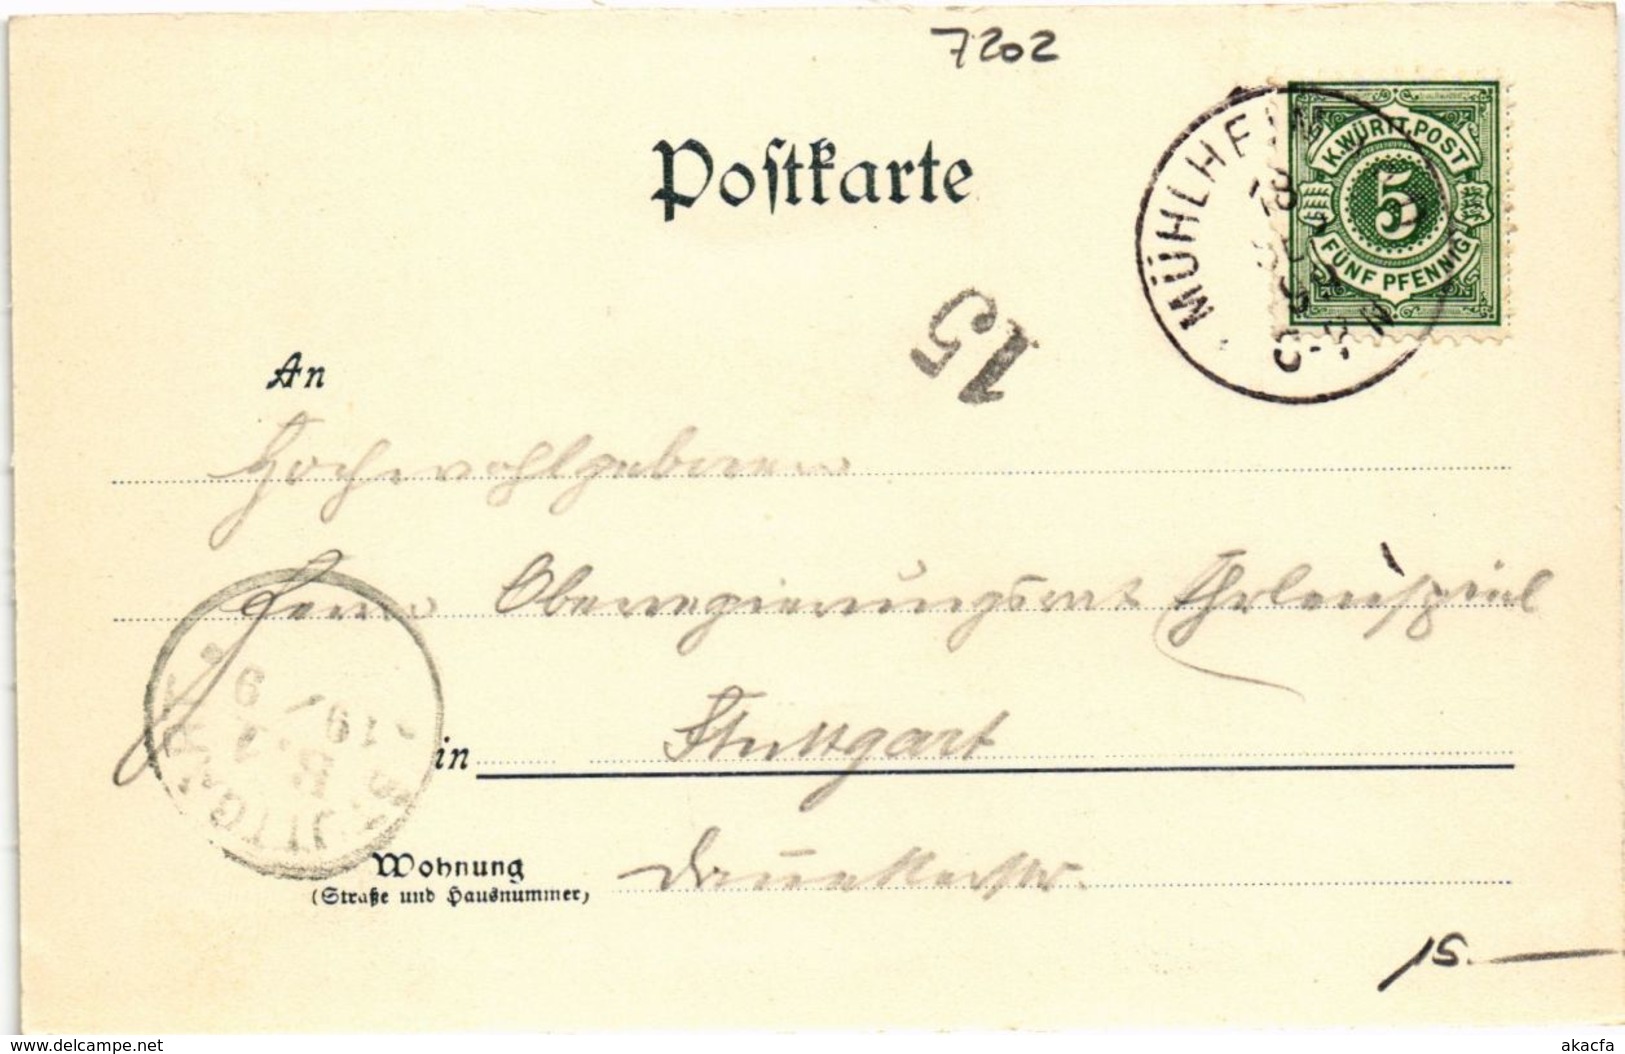 7202
Postkarte
K.WÜRTT.POST
5
FÜNF PFENNIG
MÜHLHEIM
15
An
Hochwohlgeboren
Herrn Oberregierungsrat
in Stuttgart
Wohnung
(Straße und Hausnummer)
15.—
www.delcampe.net
akacfa